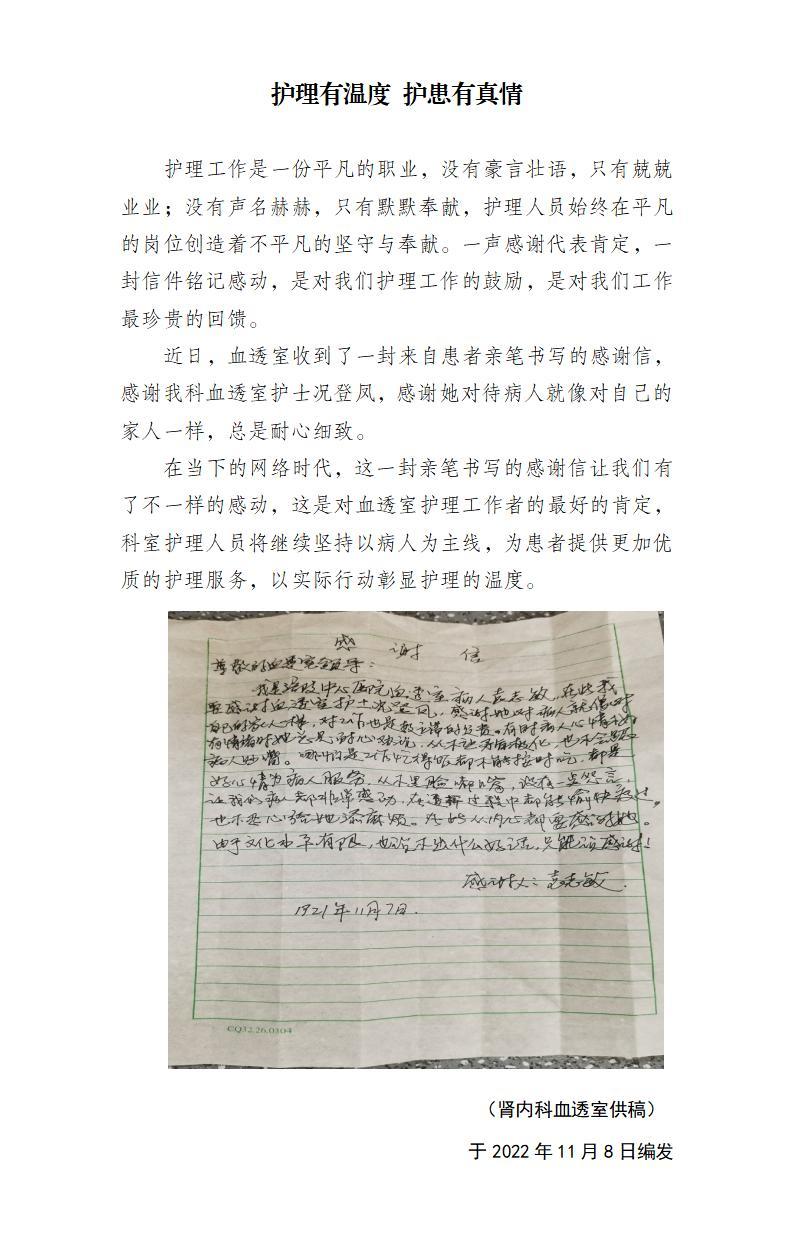 护理有温度 护患有真情
护理工作是一份平凡的职业，没有豪言壮语，只有兢兢
业业；没有声名赫赫，只有默默奉献，护理人员始终在平凡
的岗位创造着不平凡的坚守与奉献。一声感谢代表肯定，一
封信件铭记感动，是对我们护理工作的鼓励，是对我们工作
最珍贵的回馈。
近日，血透室收到了一封来自患者亲笔书写的感谢信，
感谢我科血透室护士况登凤，感谢她对待病人就像对自己的
家人一样，总是耐心细致。
在当下的网络时代，这一封亲笔书写的感谢信让我们有
了不一样的感动，这是对血透室护理工作者的最好的肯定，
科室护理人员将继续坚持以病人为主线，为患者提供更加优
质的护理服务，以实际行动彰显护理的温度。
感谢信
尊敬的血透室领导：
我是涪陵中心医院血透室病人袁志敏，在此我
要感谢血透室护士况登凤，感谢她对病人就像对
自己的家人一样，对工作也是
有情绪时她总是耐心劝说，从不
病人吵嘴。哪怕是工作忙得饭都不能按时吃，都是
好心情为病人服务，从不黑脸，没有一点怨言，
让我们病人都非常感动，在透析过程中都能愉快度过，
也不担心给她添麻烦。病人内心都要感谢她。
由于文化水平有限，也写不出什么好话，只能说感谢！
感谢人：袁志敏
1921年11月7日.
CQ32.26.0304
（肾内科血透室供稿）
于 2022 年 11 月 8 日编发